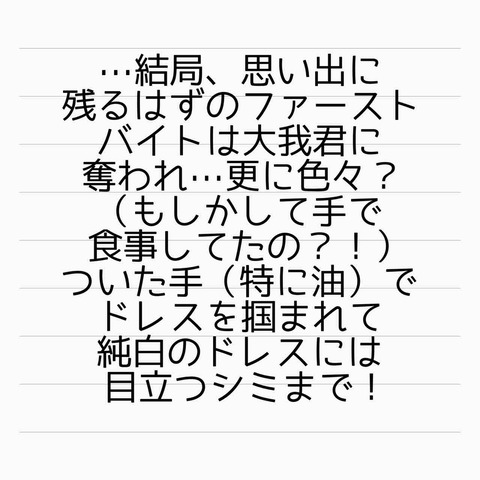 …結局、思い出に
残るはずのファースト
バイトは大我君に
奪われ…更に色々？
（もしかして手で
食事してたの？！）
ついた手（特に油）で
ドレスを掴まれて
純白のドレスには
目立つシミまで！